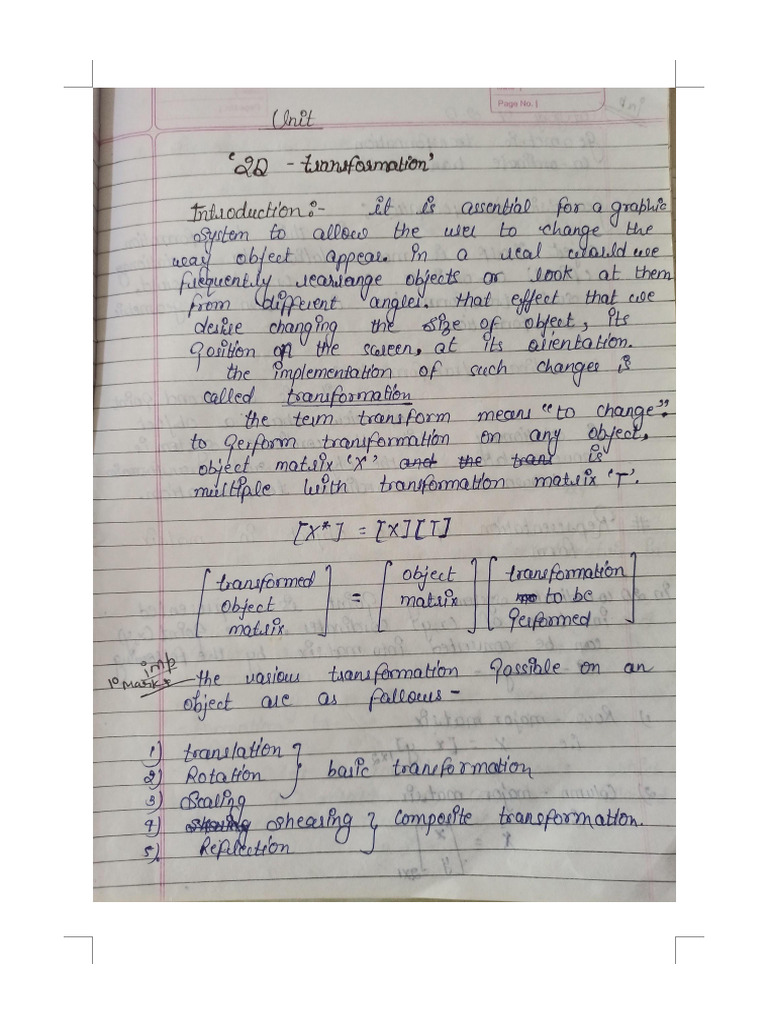 Page No.
Unit
'2D - transformation'
Introduction :- it is assential for a graphic
system to allow the user to change the
way object appear. in a real would we
frequently rearrange objects or look at them
from different angles. that effect that we
desire changing the size of object, its
position on the screen, at its orientation.
the implementation of such changes is
called transformation
the term transform means "to change".
to perform transformation on any object,
object matrix 'X' and the trans is
multiple with transformation matrix 'T'.
[X*] = [X][T]
[transformed object matrix] = [object matrix] [transformation to be performed]
imp
10 Marks
the various transformation possible on an
object are as fallows -
1) translation
2) Rotation } basic transformation
3) Scaling
4) shearing } composite transformation.
5) Reflection